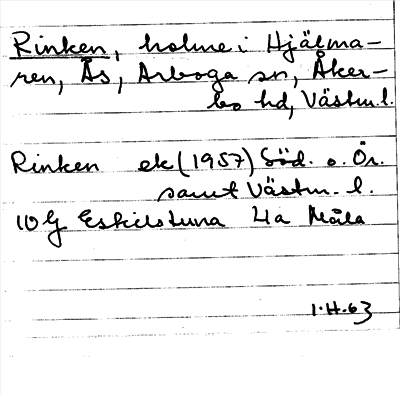 Rinken, holme i Hjälma-
ren, Ås, Arboga sn, Åker-
bo hd, Västm.l.
Rinken ek (1957) Söd. o. Ör.
samt Västm. l.
10G Eskilstuna 4a Mäla
1.H.63